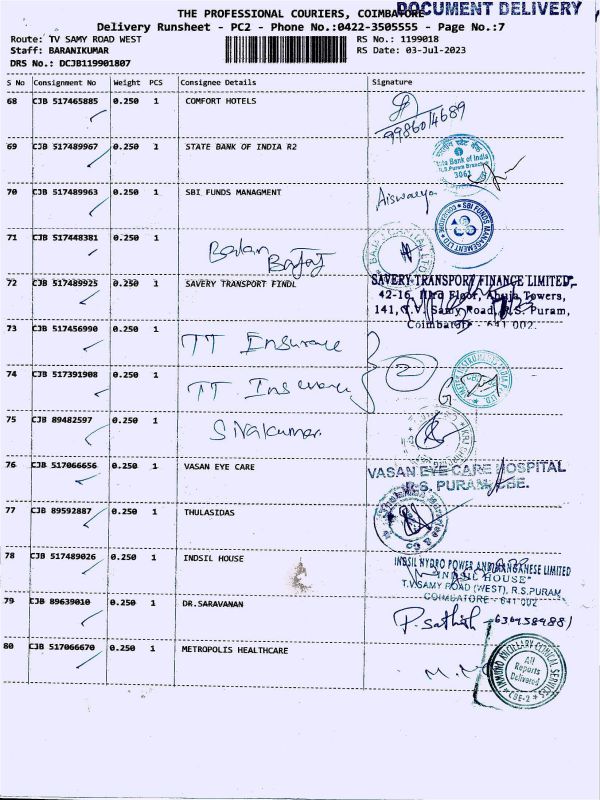 DOCUMENT DELIVERY
THE PROFESSIONAL COURIERS, COIMBATORE
Delivery Runsheet - PC2 - Phone No.:0422-3505555 - Page No.:7
Route: TV SAMY ROAD WEST RS No.: 1199018
Staff: BARANIKUMAR RS Date: 03-Jul-2023
DRS No.: DCJB119901807
S No Consignment No Weight PCS Consignee Details Signature
68 CJB 517465885 0.250 1 COMFORT HOTELS
9986014689
69 CJB 517489967 0.250 1 STATE BANK OF INDIA R2
Bank of India
R.S.Puram Branch
3061
70 CJB 517489963 0.250 1 SBI FUNDS MANAGMENT Aiswarya
SBI FUNDS MANAGEMENT LTD
COIMBATORE
71 CJB 517448381 0.250 1 Balan
Bajaj
BAJAJ CAPITAL LTD
72 CJB 517489925 0.250 1 SAVERY TRANSPORT FINDL SAVERY TRANSPORT FINANCE LIMITED,
42-16, IIIrd Floor, Ahuja Towers,
141, T.V. Samy Road, R.S. Puram,
Coimbatore - 641 002.
73 CJB 517456990 0.250 1 TT Insurance
74 CJB 517391908 0.250 1 TT Insurance
2
75 CJB 89482597 0.250 1 Sivakumar
76 CJB 517066656 0.250 1 VASAN EYE CARE VASAN EYE CARE HOSPITAL
R.S. PURAM, CBE.
77 CJB 89592887 0.250 1 THULASIDAS
78 CJB 517489026 0.250 1 INDSIL HOUSE INDSIL HYDRO POWER AND MANGANESE LIMITED
"INDSIL HOUSE"
T.V.SAMY ROAD (WEST), R.S.PURAM,
COIMBATORE - 641 002
79 CJB 89639010 0.250 1 DR.SARAVANAN P. Sathish
80 CJB 517066670 0.250 1 METROPOLIS HEALTHCARE
IMMUNO ANCILLARY CLINICAL SERVICES
All
Reports
Delivered
CBE-2